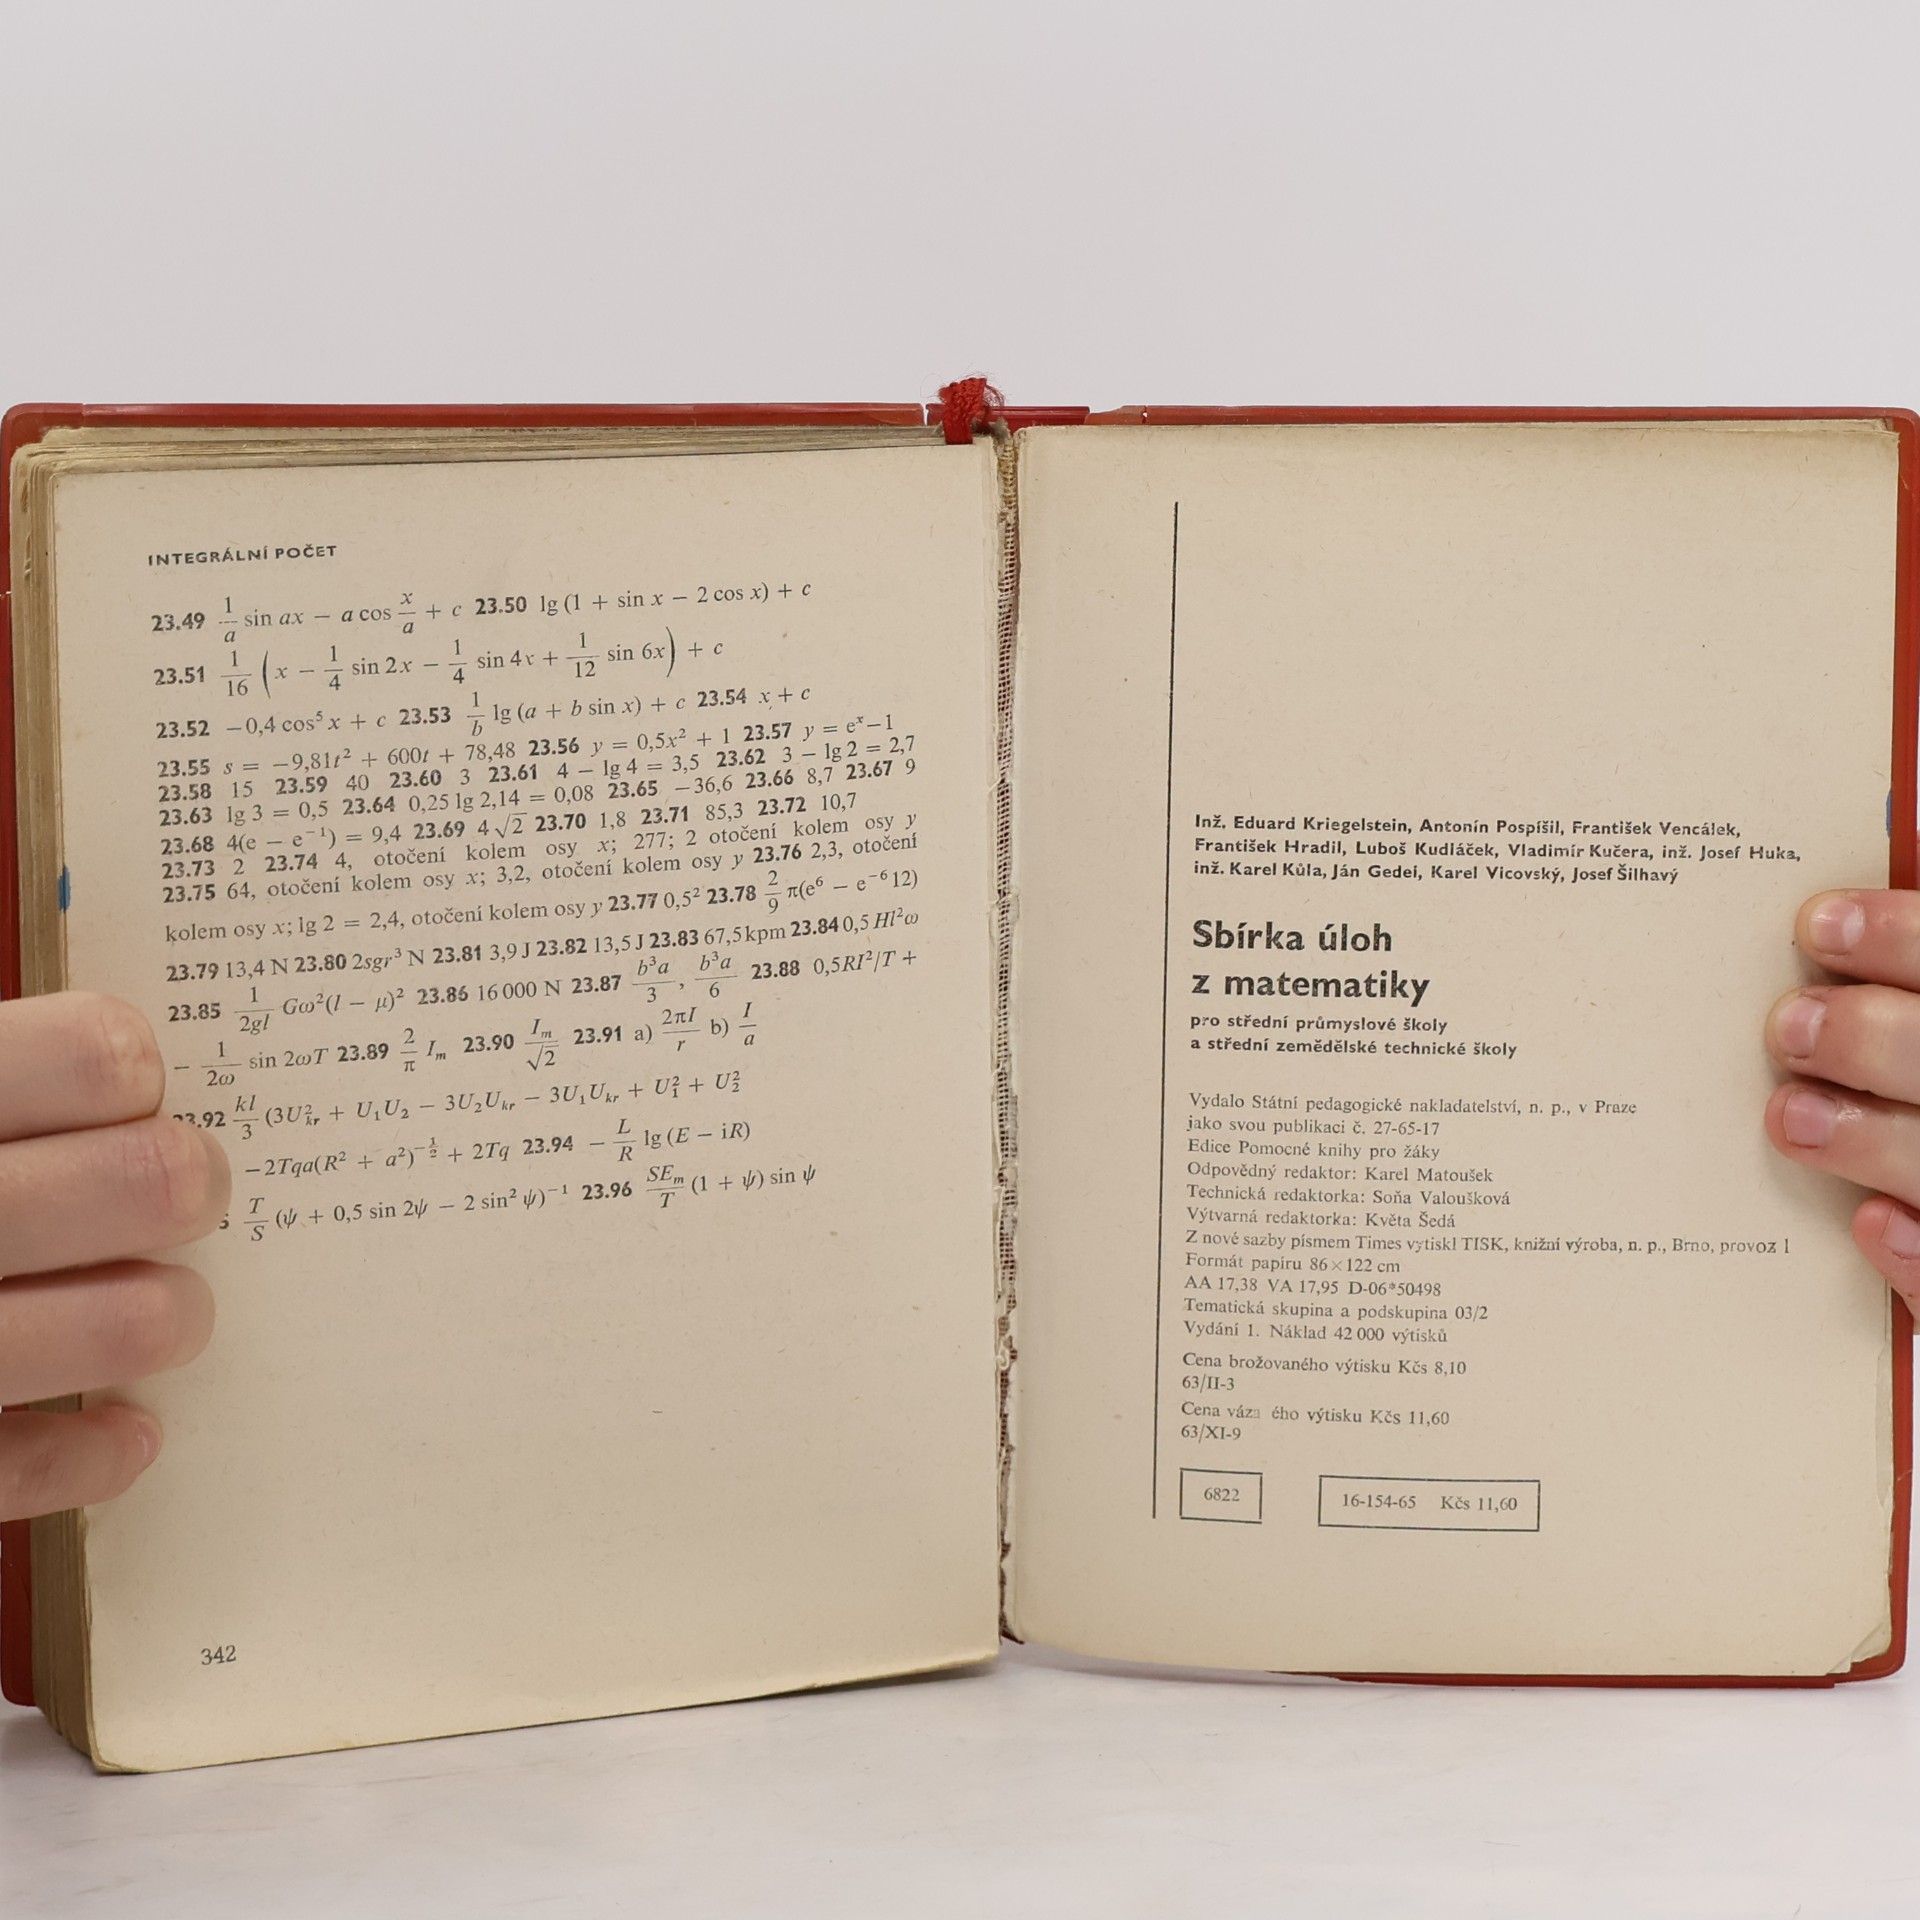 INTEGRÁLNÍ POČET
23.49 1/a sin ax − a cos x/a + c 23.50 lg (1 + sin x − 2 cos x) + c
23.51 1/16 (x − 1/4 sin 2x − 1/4 sin 4x + 1/12 sin 6x) + c
23.52 −0,4 cos⁵ x + c 23.53 1/b lg (a + b sin x) + c 23.54 x + c
23.55 s = −9,81t² + 600t + 78,48 23.56 y = 0,5x² + 1 23.57 y = eˣ−1
23.58 15 23.59 40 23.60 3 23.61 4 − lg 4 = 3,5 23.62 3 − lg 2 = 2,7
23.63 lg 3 = 0,5 23.64 0,25 lg 2,14 = 0,08 23.65 −36,6 23.66 8,7 23.67 9
23.68 4(e − e⁻¹) = 9,4 23.69 4√2 23.70 1,8 23.71 85,3 23.72 10,7
23.73 2 23.74 4, otočení kolem osy x; 277; 2 otočení kolem osy y
23.75 64, otočení kolem osy x; 3,2, otočení kolem osy y 23.76 2,3, otočení
kolem osy x; lg 2 = 2,4, otočení kolem osy y 23.77 0,5² 23.78 2/9 π(e⁶ − e⁻⁶12)
23.79 13,4 N 23.80 2sgr³ N 23.81 3,9 J 23.82 13,5 J 23.83 67,5 kpm 23.84 0,5 Hl²ω
23.85 1/2gl Gω²(l − μ)² 23.86 16 000 N 23.87 b³a/3, b³a/6 23.88 0,5RI²/T +
− 1/2ω sin 2ωT 23.89 2/π Iₘ 23.90 Iₘ/√2 23.91 a) 2πI/r b) I/a
23.92 kl/3 (3U²kr + U₁U₂ − 3U₂Ukr − 3U₁Ukr + U₁² + U₂²
−2Tqa(R² + a²)^−1/2 + 2Tq 23.94 − L/R lg (E − iR)
5 T/S (ψ + 0,5 sin 2ψ − 2 sin² ψ)⁻¹ 23.96 SEₘ/T (1 + ψ) sin ψ
342
Inž. Eduard Kriegelstein, Antonín Pospíšil, František Vencálek,
František Hradil, Luboš Kudláček, Vladimír Kučera, inž. Josef Huka,
inž. Karel Kůla, Ján Gedei, Karel Vicovský, Josef Šilhavý
Sbírka úloh
z matematiky
pro střední průmyslové školy
a střední zemědělské technické školy
Vydalo Státní pedagogické nakladatelství, n. p., v Praze
jako svou publikaci č. 27-65-17
Edice Pomocné knihy pro žáky
Odpovědný redaktor: Karel Matoušek
Technická redaktorka: Soňa Valoušková
Výtvarná redaktorka: Květa Šedá
Z nové sazby písmem Times vytiskl TISK, knižní výroba, n. p., Brno, provoz 1
Formát papíru 86×122 cm
AA 17,38 VA 17,95 D-06*50498
Tematická skupina a podskupina 03/2
Vydání 1. Náklad 42 000 výtisků
Cena brožovaného výtisku Kčs 8,10
63/II-3
Cena váza ého výtisku Kčs 11,60
63/XI-9
6822
16-154-65 Kčs 11,60